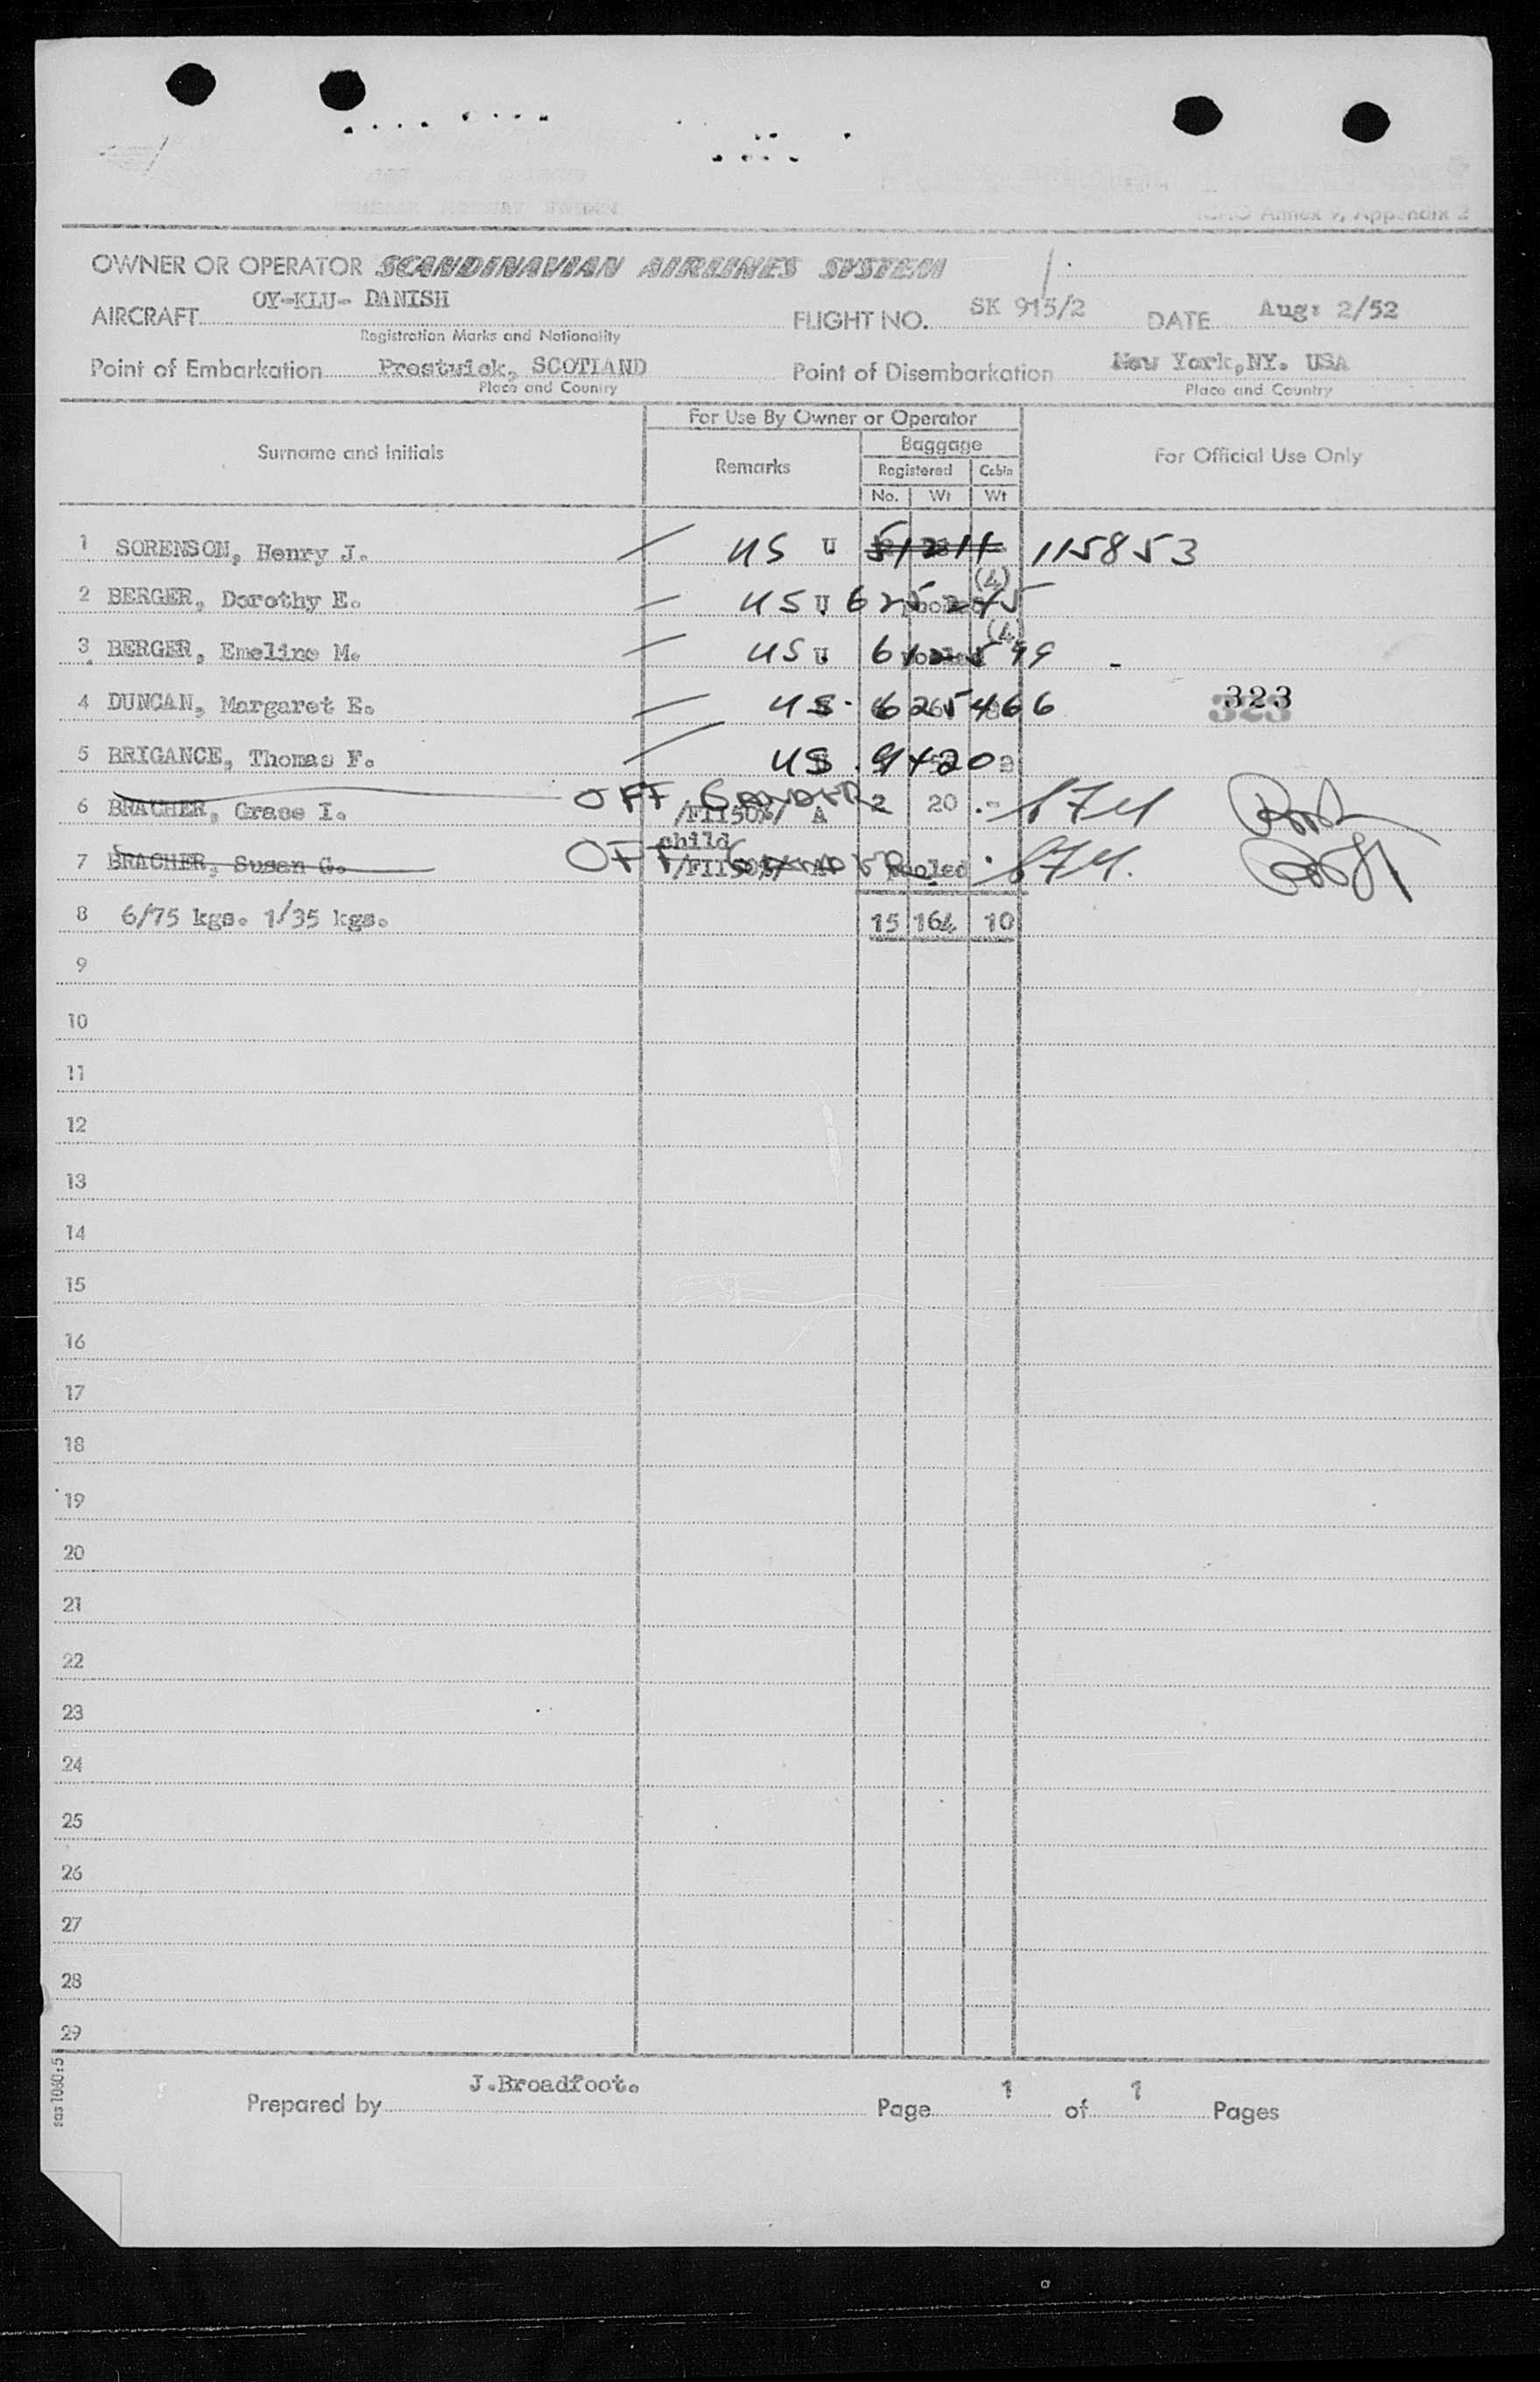 DENMARK NORWAY SWEDEN
ICAO Annex 9, Appendix 2
OWNER OR OPERATOR SCANDINAVIAN AIRLINES SYSTEM
AIRCRAFT OY-KLU- DANISH FLIGHT NO. SK 915/2 DATE Aug: 2/52
Registration Marks and Nationality
Point of Embarkation Prestwick, SCOTLAND Point of Disembarkation New York,NY. USA
Place and Country Place and Country
For Use By Owner or Operator
Surname and Initials Remarks Baggage For Official Use Only
Registered Cabin
No. Wt Wt
1 SORENSON, Henry J. US U 115853
2 BERGER, Dorothy E. US U 625245 (4)
3 BERGER, Emeline M. US U (4)
4 DUNCAN, Margaret E. US 625466 323
5 BRIGANCE, Thomas F. US
6 BRACHER, Grace I. OFF GANDER /FII50%/ A 2 20 -
child
7 BRACHER, Susan G. OFF GANDER /FII50%/ pooled
8 6/75 kgs. 1/35 kgs. 15 164 10
9
10
11
12
13
14
15
16
17
18
19
20
21
22
23
24
25
26
27
28
29
sas 1060:5
Prepared by J.Broadfoot. Page 1 of 1 Pages